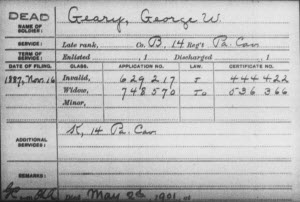 DEAD Geary, George W.
NAME OF SOLDIER:
SERVICE: Late rank, Co. B, 14 Reg't Pa. Cav
TERM OF SERVICE: Enlisted , 1 Discharged , 1
DATE OF FILING. CLASS. APPLICATION NO. LAW. CERTIFICATE NO.
1887, Nov. 16 Invalid, 629217 444422
Widow, 748570 536366
Minor,
ADDITIONAL SERVICES: K, 14 Pa. Cav
REMARKS:
died May 2d, 1901, at